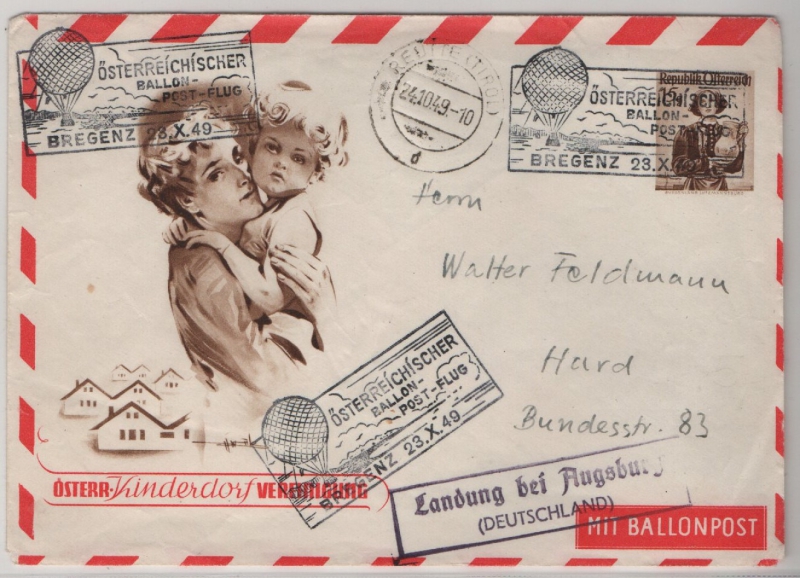 ÖSTERREICHISCHER
BALLON-
POST-FLUG
BREGENZ 23.X.49
REUTTE (TIROL)
24.10.49.-10
d
ÖSTERREICHISCHER
BALLON-
POST-FLUG
BREGENZ 23.X.
Republik Österreich
Herrn
Walter Feldmann
Hard
Bundesstr. 83
ÖSTERREICHISCHER
BALLON-
POST-FLUG
BREGENZ 23.X.49
ÖSTERR. Kinderdorf VEREINIGUNG
Landung bei Augsburg
(DEUTSCHLAND)
MIT BALLONPOST